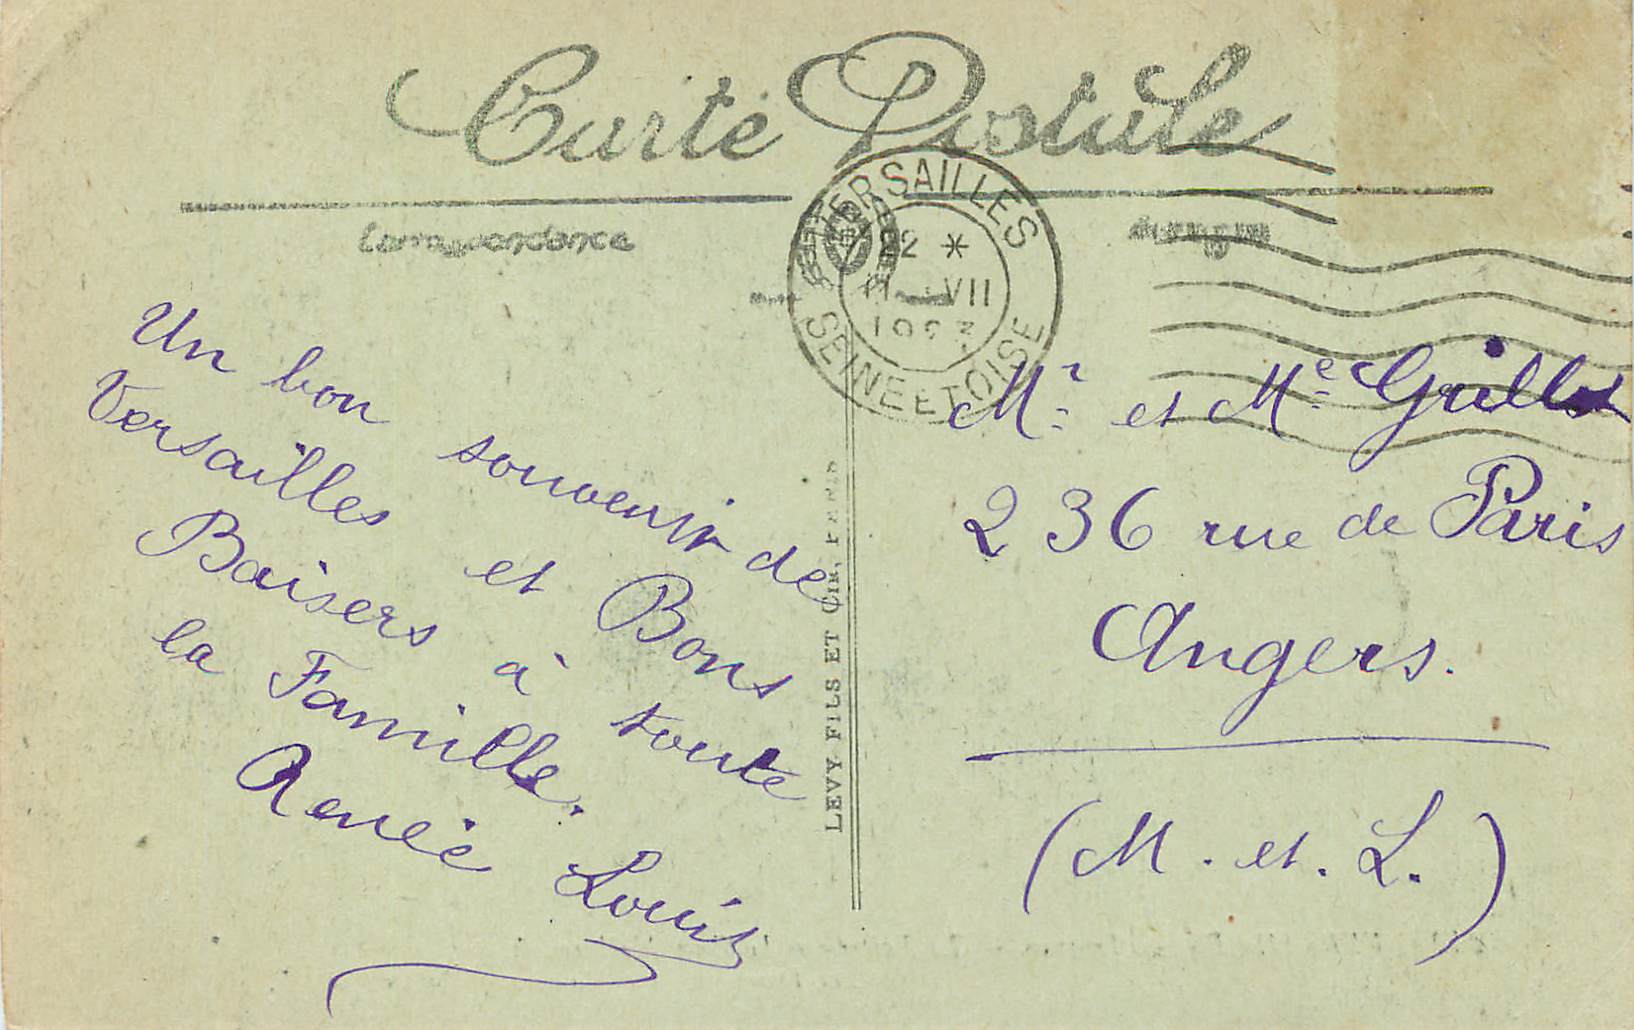 Carte Postale
Correspondance
Adresse
VERSAILLES
22 *
VII
SEINE ET OISE
Un bon souvenir de
Versailles et Bons
Baisers à toute
la Famille.
Renée Louis
LEVY FILS ET CIE, PARIS
Mr et Me Grillot
236 rue de Paris
Angers.
(M. et. L.)